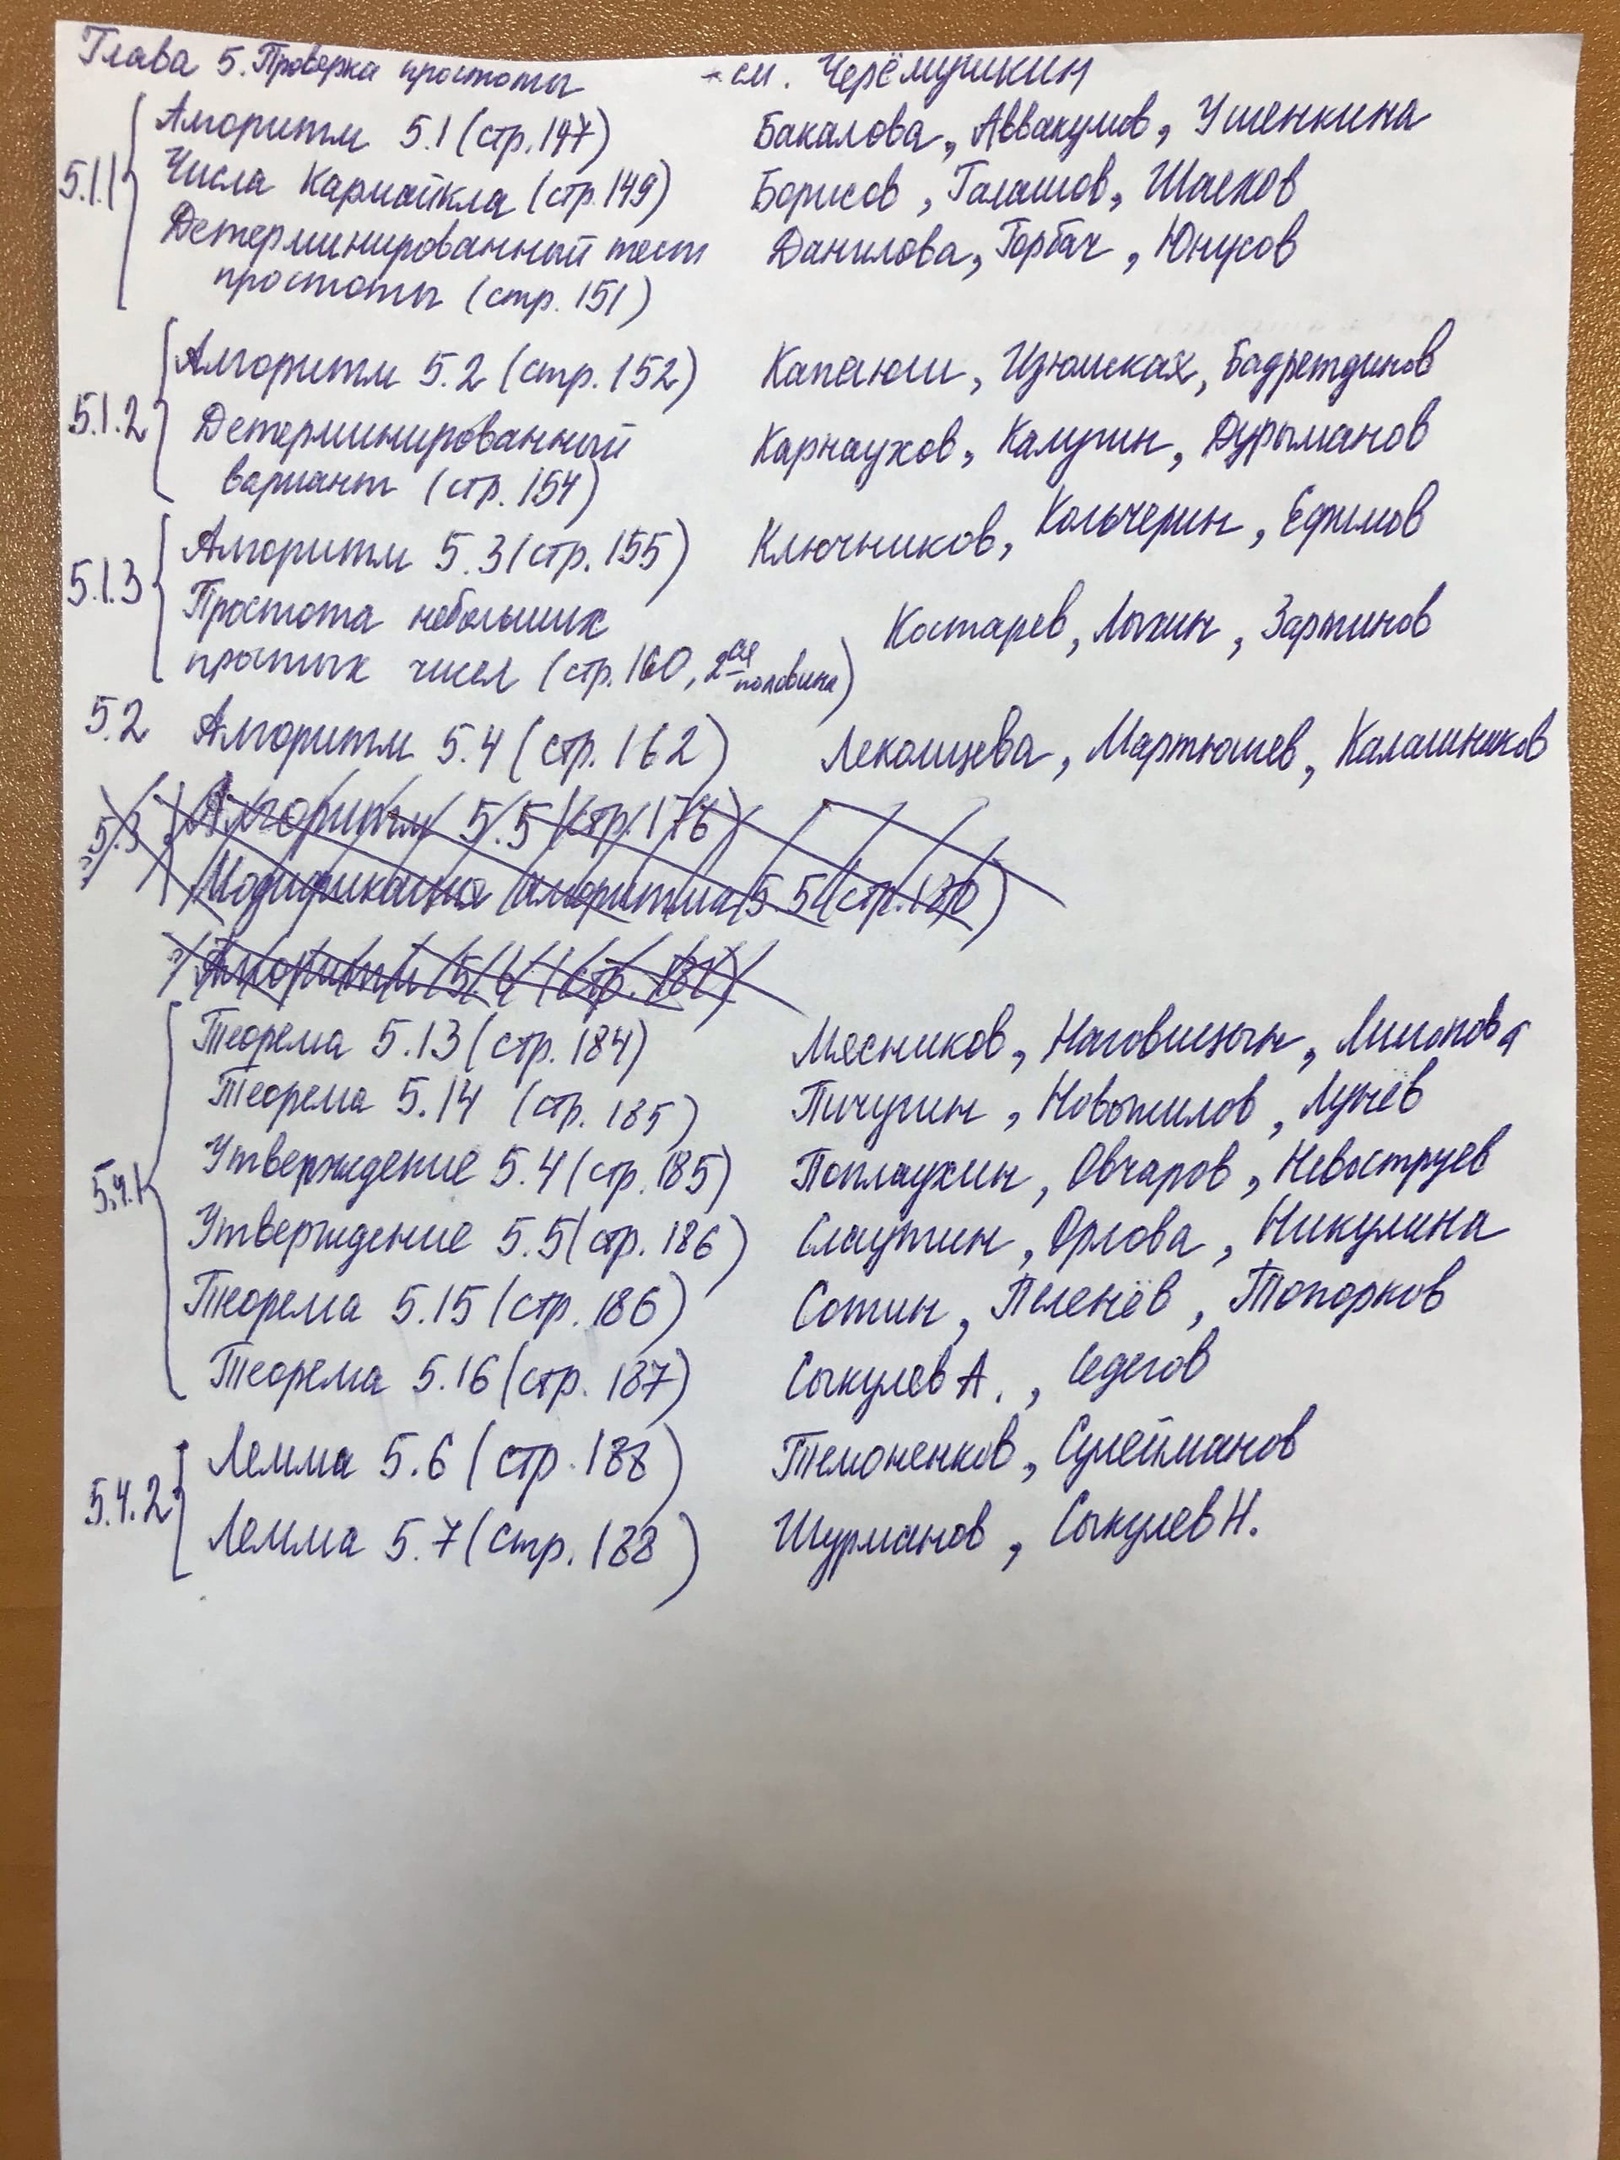 Глава 5. Проверка простоты - см. Черёмушкин
5.1.1 Алгоритм 5.1 (стр. 147) Бакалова, Аввакумов, Ушенкина
Числа Кармайкла (стр. 149) Борисов, Галашов, Шаехов
Детерминированный тест Данилова, Горбач, Юнусов
простоты (стр. 151)
Алгоритм 5.2 (стр. 152) Капсюш, Изюмских, Бадретдинов
5.1.2 Детерминированный Карнаухов, Калугин, Дурыманов
вариант (стр. 154)
5.1.3 Алгоритм 5.3 (стр. 155) Ключников, Кольчерин, Ефимов
Простота небольших Костарев, Лыхин, Зартинов
простых чисел (стр. 160, 2ая половина)
5.2 Алгоритм 5.4 (стр. 162) Лекомцева, Мартюшев, Калашников
5.3 Алгоритм 5.5 (стр. 176)
Модификация алгоритма 5.5 (стр. 180)
Алгоритм 5.6 (стр. 181)
Теорема 5.13 (стр. 184) Мясников, Наговицын, Липопова
Теорема 5.14 (стр. 185) Пичугин, Новожилов, Лунёв
5.4.1 Утверждение 5.4 (стр. 185) Поплаухин, Овчаров, Невоструев
Утверждение 5.5 (стр. 186) Слаутин, Орлова, Никулина
Теорема 5.15 (стр. 186) Сотин, Пеленёв, Топорков
Теорема 5.16 (стр. 187) Сыкулев А., Седегов
5.4.2 Лемма 5.6 (стр. 188) Темоненков, Сулейманов
Лемма 5.7 (стр. 188) Шурманов, Сыкулев Н.